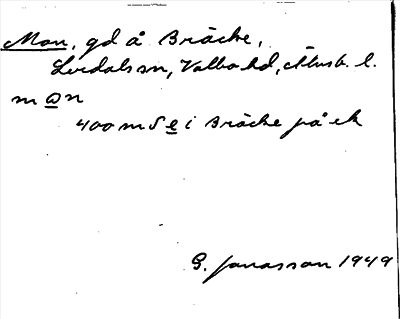 Mon, gd å Bräcke,
Lerdals sn, Valbo hd, Älvsb. l.
mωn
400 m S e i Bräcke på ek
G. Jonasson 1949